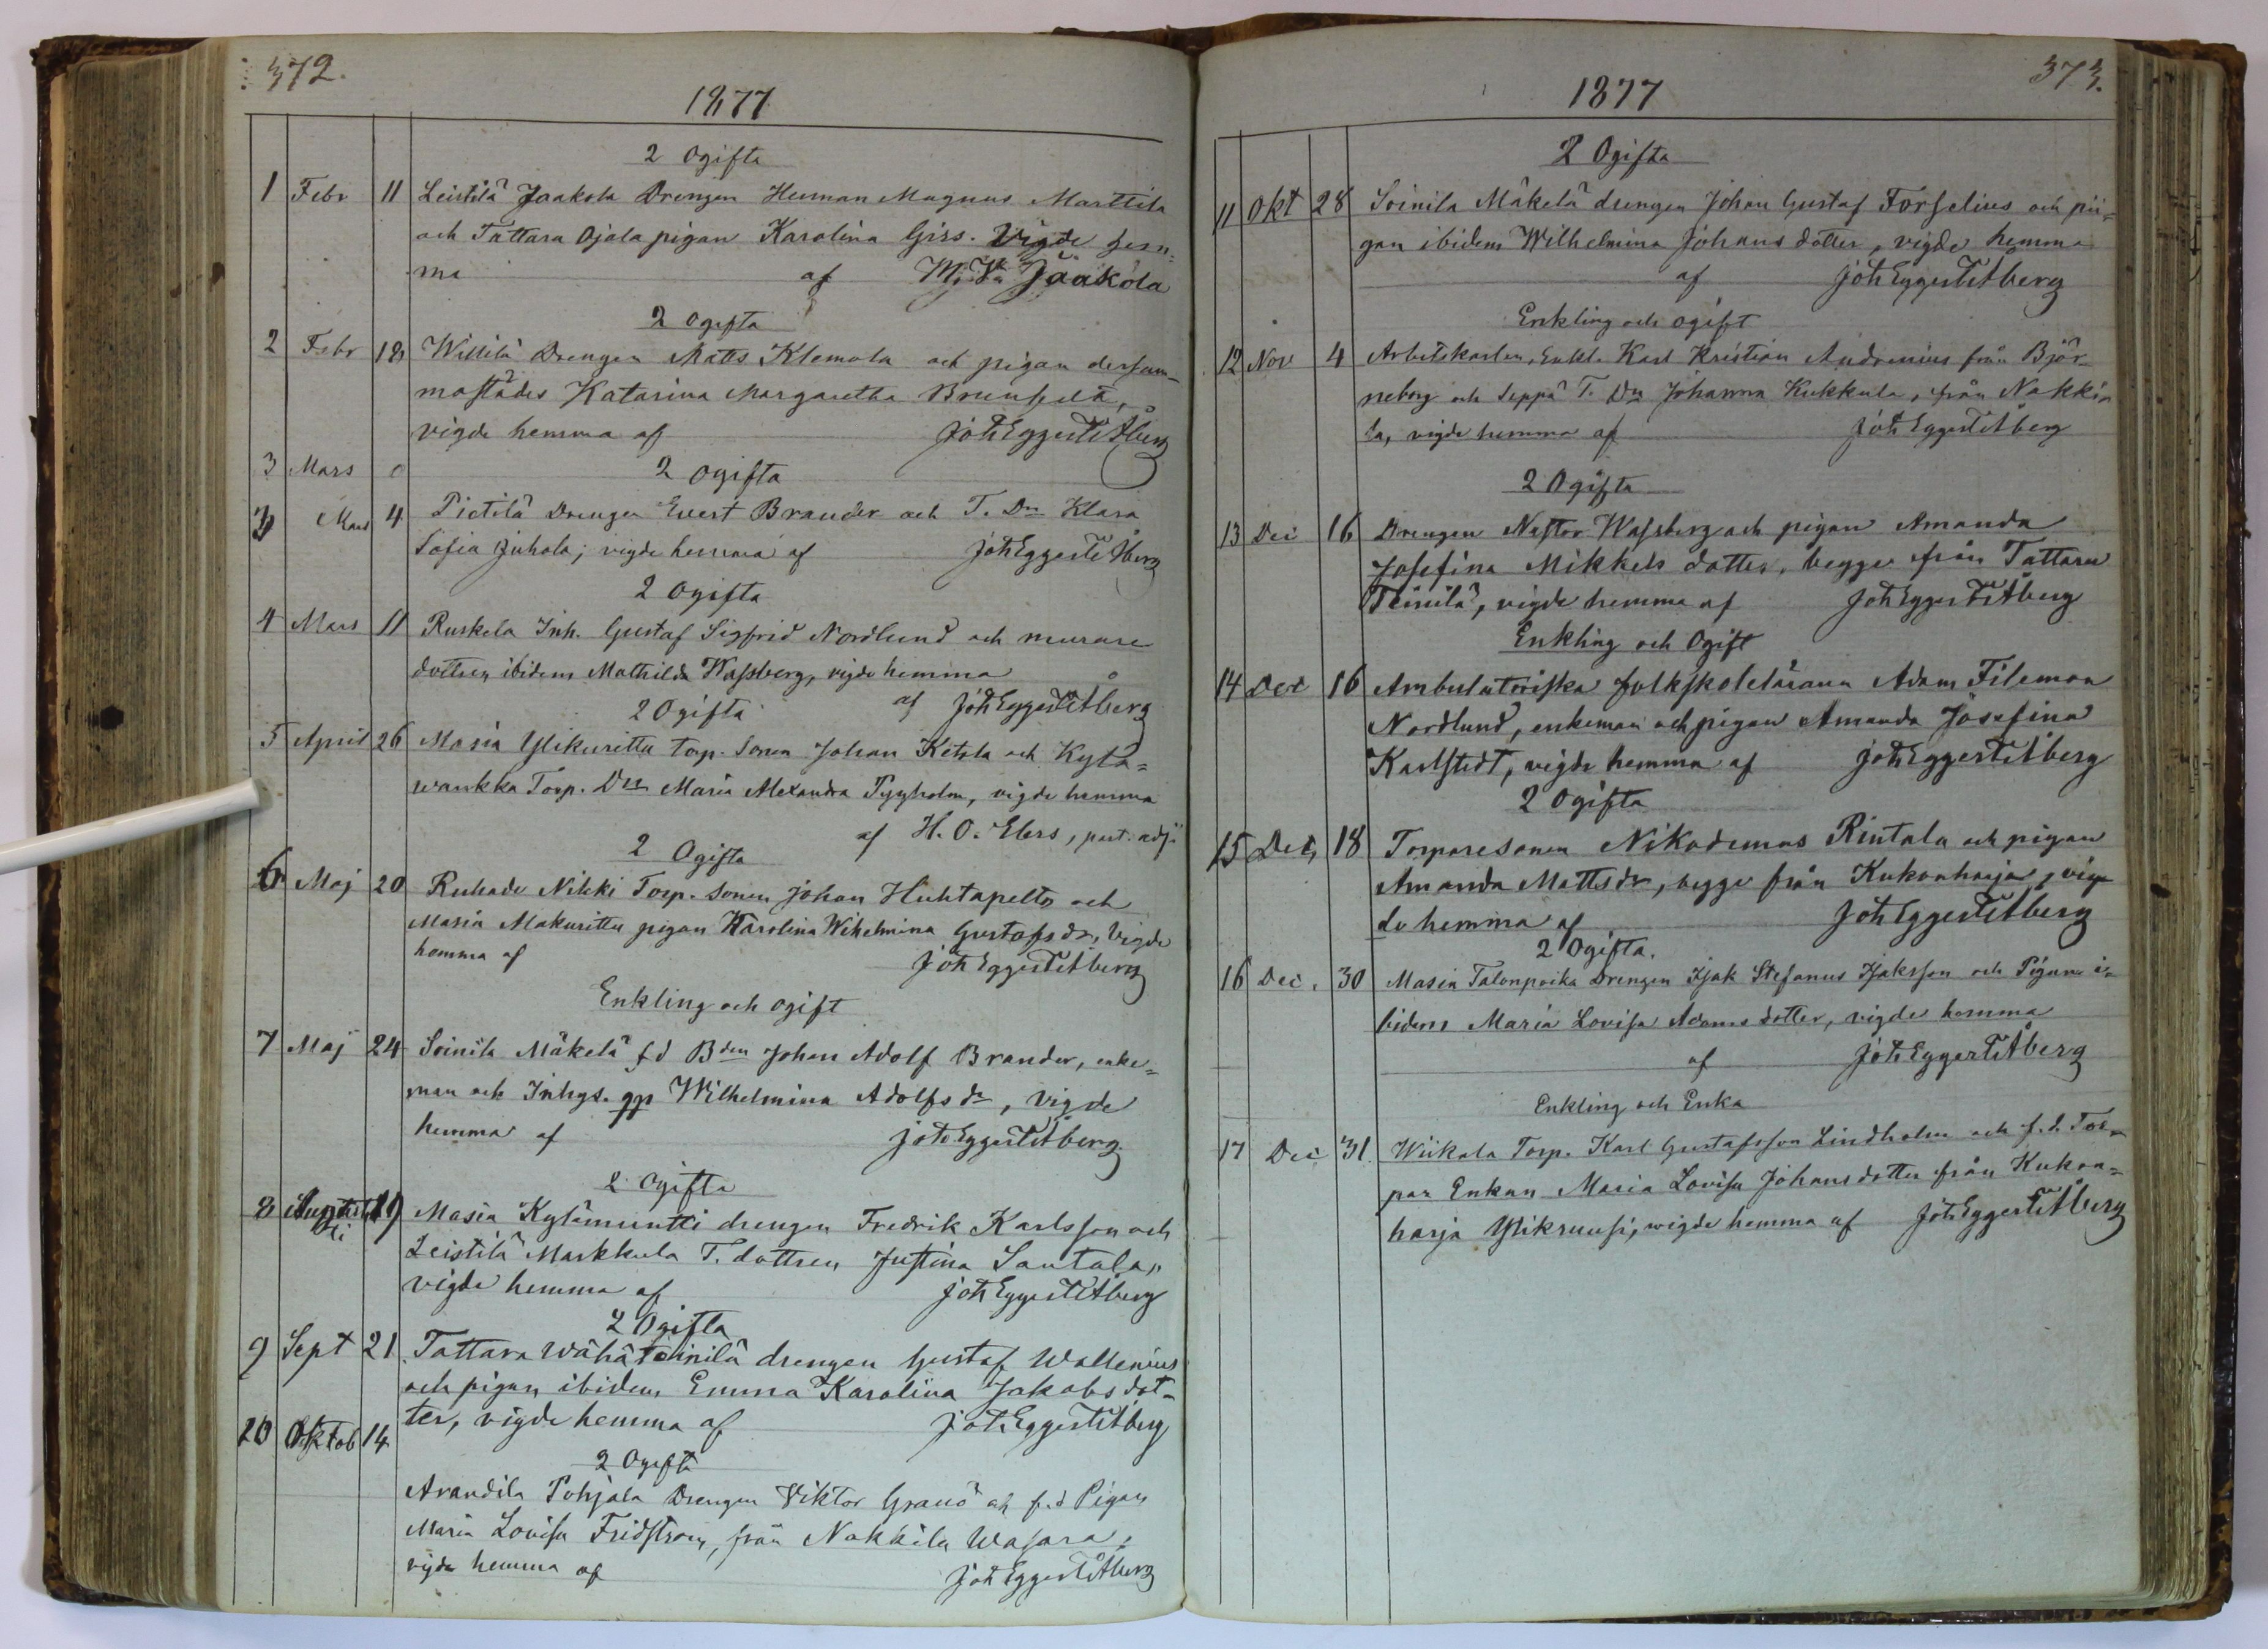 372.
1877
2 Ogifta
1 Febr 11 Leistilä Jaakola Drengen Herman Magnus Marttila
och Tattara Ojala pigan Karolina Giss. Vigde hem-
ma af M. V. Jaakola
2 Ogifta
2 Febr 18 Willilä Drengen Matts Klemola och pigan dersam-
mastädes Katarina Margaretha Brunfeldt,
vigde hemma af Joh Eggert Åberg
3 Mars 0 2 Ogifta
3 Mars 4 Pietilä Drengen Evert Brander och T. Dn Klara
Sofia Juhola; vigde hemma af Joh Eggert Åberg
2 Ogifta
4 Mars 11 Ruskela Inh. Gustaf Sigfrid Nordlund och murare
dottren ibidem Mathilda Wassberg, vigde hemma
af Joh Eggert Åberg
2 Ogifta
5 April 26 Masia Ylikuritta torp. Sonen Johan Ketola och Kylä-
wankka Torp. Drn Maria Alexandra Pyyholm, vigde hemma
af H. O. Elers, past. adj.
2 Ogifta
6 Maj 20 Ruhade Nikki Torp. sonen Johan Huhtapelto och
Masia Makuritta pigan Karolina Wilhelmina Gustafs dr, Vigde
hemma af Joh Eggert Åberg
Enkling och ogift
7 Maj 24 Soinila Mäkelä f.d Bden Johan Adolf Brander, enke-
man och Inhys. gp Wilhelmina Adolfs dr, vigde
hemma af Joh Eggert Åberg
2 Ogifta
8 Augusti 19 Masia Kylämuntti drengen Fredrik Karlsson och
Leistilä Markkula T. dottren Justina Santala,
vigde hemma af Joh Eggert Åberg
2 Ogifta
9 Sept 21 Tattara Wähä Teinilä drengen Gustaf Wallenius
och pigan ibidem Emma Karolina Jakobs dot-
ter, vigde hemma af Joh Eggert Åberg
10 Oktob 14
2 Ogifta
Arandila Pohjala Drengen Viktor Granö och f.d Pigan
Maria Lovisa Fridström, från Nakkila Wasara,
vigde hemma af Joh Eggert Åberg
373.
1877
2 Ogifta
11 Okt 28 Soinila Mäkelä drengen Johan Gustaf Forselius och pi-
gan ibidem Wilhelmina Johans dotter, vigde hemma
af Joh Eggert Åberg
Enkling och ogift
12 Nov 4 Arbetskarlen, Enkl. Karl Kristian Andronius från Björ-
neborg och Seppä T. Dn Johanna Kukkula, från Nakki-
la, vigde hemma af Joh Eggert Åberg
2 Ogifta
13 Dec 16 Drengen Nestor Wassberg och pigan Amanda
Josefina Mikkels dotter, begge från Tattara
Teinilä, vigde hemma af Joh Eggert Åberg
Enkling och Ogift
14 Dec 16 Ambulatoriska folkskoleläraren Adam Filemon
Nordlund, enkeman och pigan Amanda Josefina
Karlstedt, vigde hemma af Joh Eggert Åberg
2 Ogifta
15 Dec, 18 Torparesonen Nikodemus Rintala och pigan
Amanda Mattsdr, begge från Kukonharja, vig-
de hemma af Joh Eggert Åberg
2 Ogifta.
16 Dec. 30 Masia Talonpoika Drengen Isak Stefanus Isaksson och Pigan i-
bidem Maria Lovisa Adams dotter, vigde hemma
af Joh Eggert Åberg
Enkling och Enka
17 Dec 31 Wiikala Torp. Karl Gustafsson Lindholm och f.d. Tor-
par Enkan Maria Lovisa Johans dotter från Kukon-
harja Ylikruusi, wigde hemma af Joh Eggert Åberg